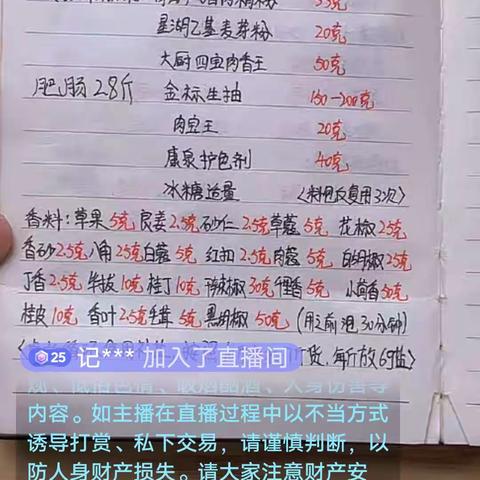 35克
星湖乙基麦芽粉 20克
大厨四宝肉香王 50克
肥肠28斤 金标生抽 150-200克
肉宝王 20克
康泉护色剂 40克
冰糖适量 (料包反复用3次)
香料：草果5克 良姜2.5克 砂仁2.5克 草蔻5克 花椒25克
香砂2.5克 八角25克 白蔻5克 红扣2.5克 肉蔻5克 白胡椒25克
丁香2.5克 毕拔10克 桂丁10克 干辣椒30克 千里香5克 小茴香50克
桂皮10克 香叶2.5克 毛草5克 黑胡椒50克 (用之前泡30分钟)
斤货，每斤放6g盐)
25 记*** 加入了直播间
规、低俗色情、吸烟酗酒、人身伤害等
内容。如主播在直播过程中以不当方式
诱导打赏、私下交易，请谨慎判断，以
防人身财产损失。请大家注意财产安